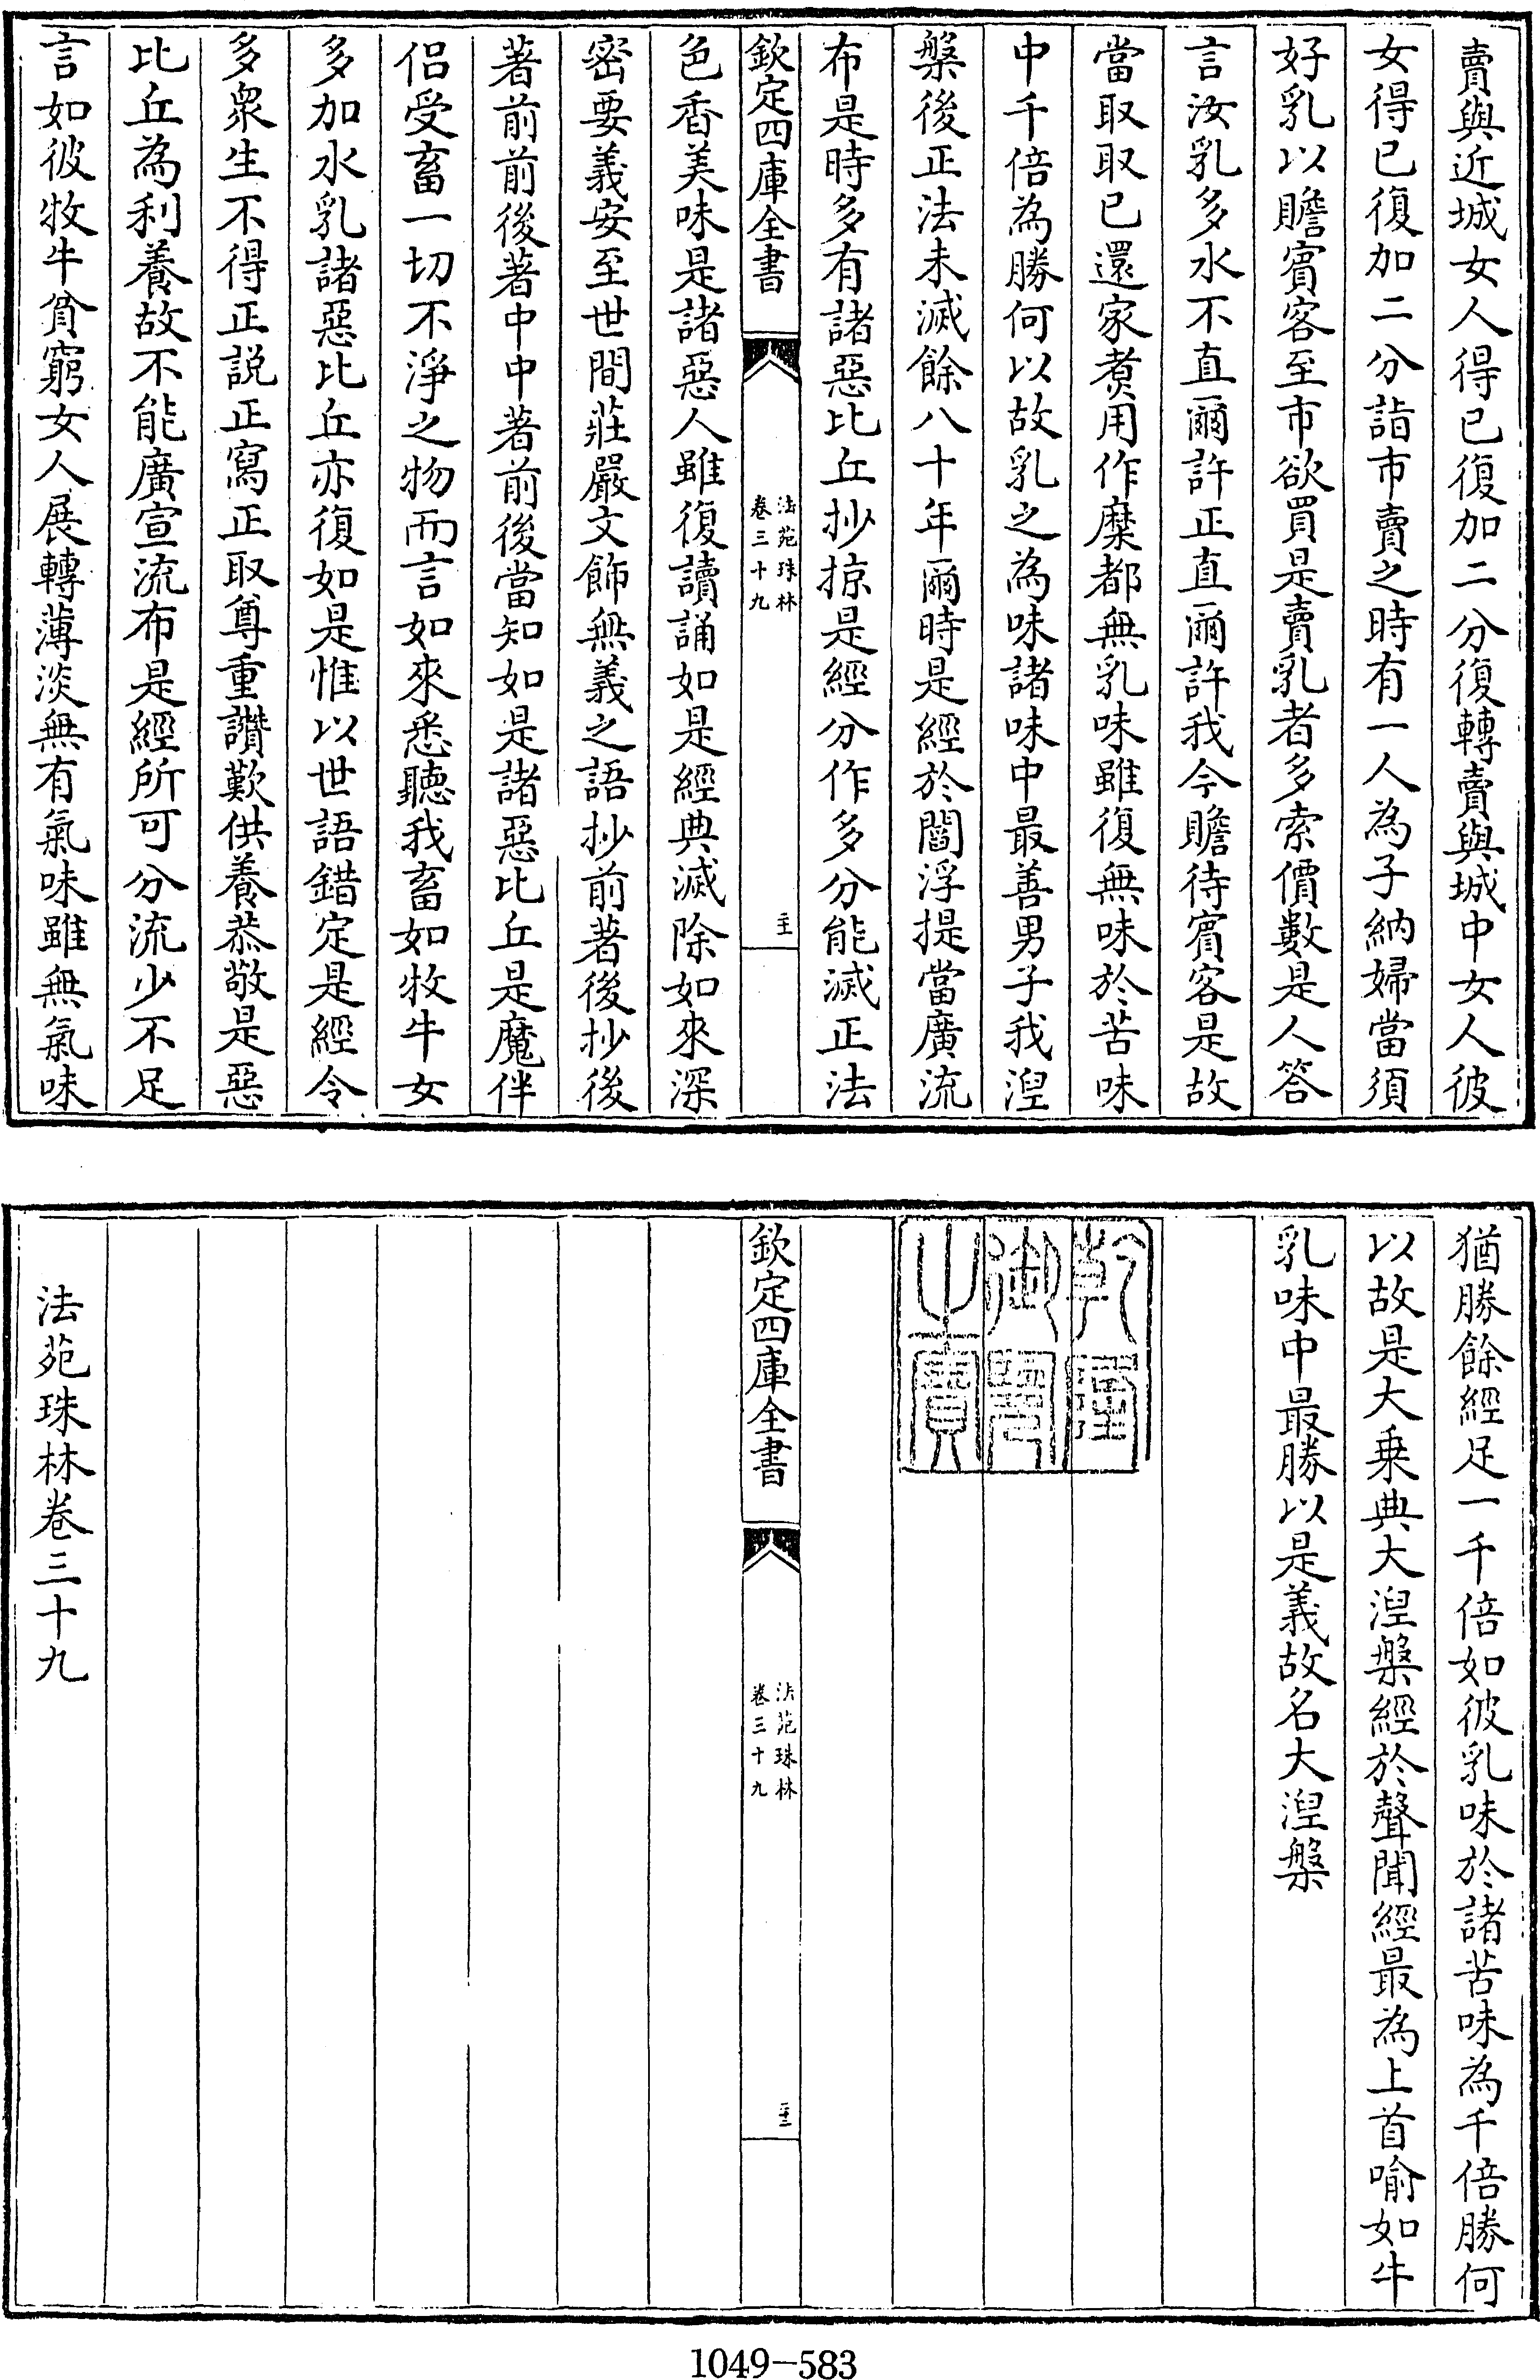 賣與近城女人得已復加二分復轉賣與城中女人彼
女得已復加二分詣市賣之時有一人為子納婦當須
好乳以贍賓客至市欲買是賣乳者多索價數是人答
言汝乳多水不直爾許正直爾許我今贍待賓客是故
當取取已還家煑用作糜都無乳味雖復無味於苦味
中千倍為勝何以故乳之為味諸味中最善男子我涅
槃後正法未滅餘八十年爾時是經於閻浮提當廣流
布是時多有諸惡比丘抄掠是經分作多分能滅正法
欽定四庫全書
法苑珠林
卷三十九
色香美味是諸惡人雖復讀誦如是經典滅除如來深
密要義安至世間莊嚴文飾無義之語抄前著後抄後
著前前後著中中著前後當知如是諸惡比丘是魔伴
侶受畜一切不淨之物而言如來悉聽我畜如牧牛女
多加水乳諸惡比丘亦復如是惟以世語錯定是經令
多衆生不得正説正寫正取尊重讚歎供養恭敬是惡
比丘為利養故不能廣宣流布是經所可分流少不足
言如彼牧牛貧窮女人展轉薄淡無有氣味雖無氣味
猶勝餘經足一千倍如彼乳味於諸苦味為千倍勝何
以故是大乗典大涅槃經於聲聞經最為上首喻如牛
乳味中最勝以是義故名大涅槃
乾隆
御覽
之寶
欽定四庫全書
法苑珠林
卷三十九
法苑珠林卷三十九
1049-583